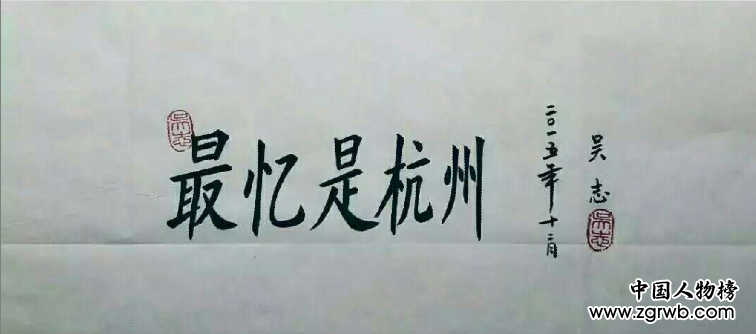 最忆是杭州
二〇一五年十二月
吴志
吴志
吴志
中国人物榜
www.zgrwb.com